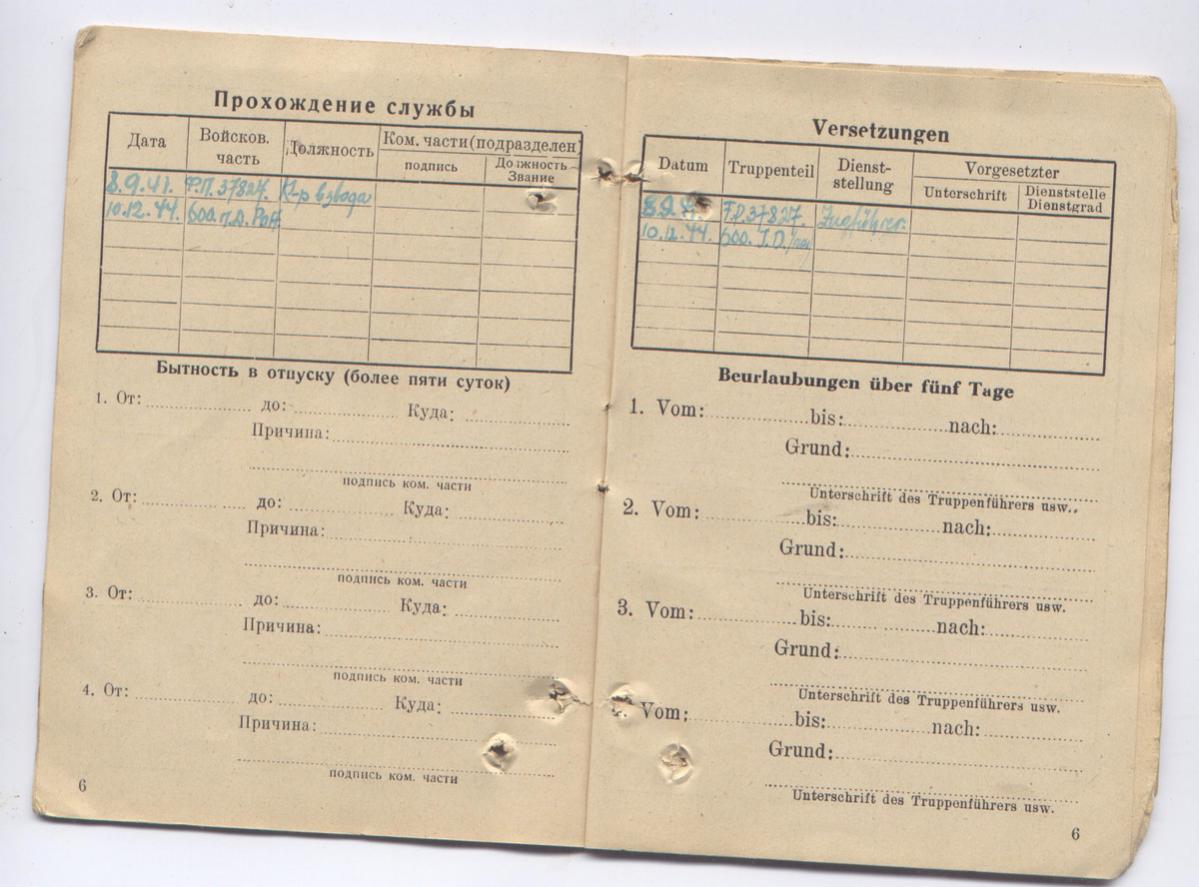 Прохождение службы
Дата Войсков. часть Должность Ком. части (подразделен
подпись Должность Звание
8.9.41. Ф.П. 37827. К-р взвода
10.12.44. 600. п.д. РОА
Бытность в отпуску (более пяти суток)
1. От: до: Куда:
Причина:
подпись ком. части
2. От: до: Куда:
Причина:
подпись ком. части
3. От: до: Куда:
Причина:
подпись ком. части
4. От: до: Куда:
Причина:
подпись ком. части
6
Versetzungen
Datum Truppenteil Dienst-stellung Vorgesetzter
Unterschrift Dienststelle Dienstgrad
8.9. 37827. Zugführer.
10.12.44. 600. I.D.
Beurlaubungen über fünf Tage
1. Vom: bis: nach:
Grund:
Unterschrift des Truppenführers usw..
2. Vom: bis: nach:
Grund:
Unterschrift des Truppenführers usw.
3. Vom: bis: nach:
Grund:
Unterschrift des Truppenführers usw.
Vom: bis: nach:
Grund:
Unterschrift des Truppenführers usw.
6